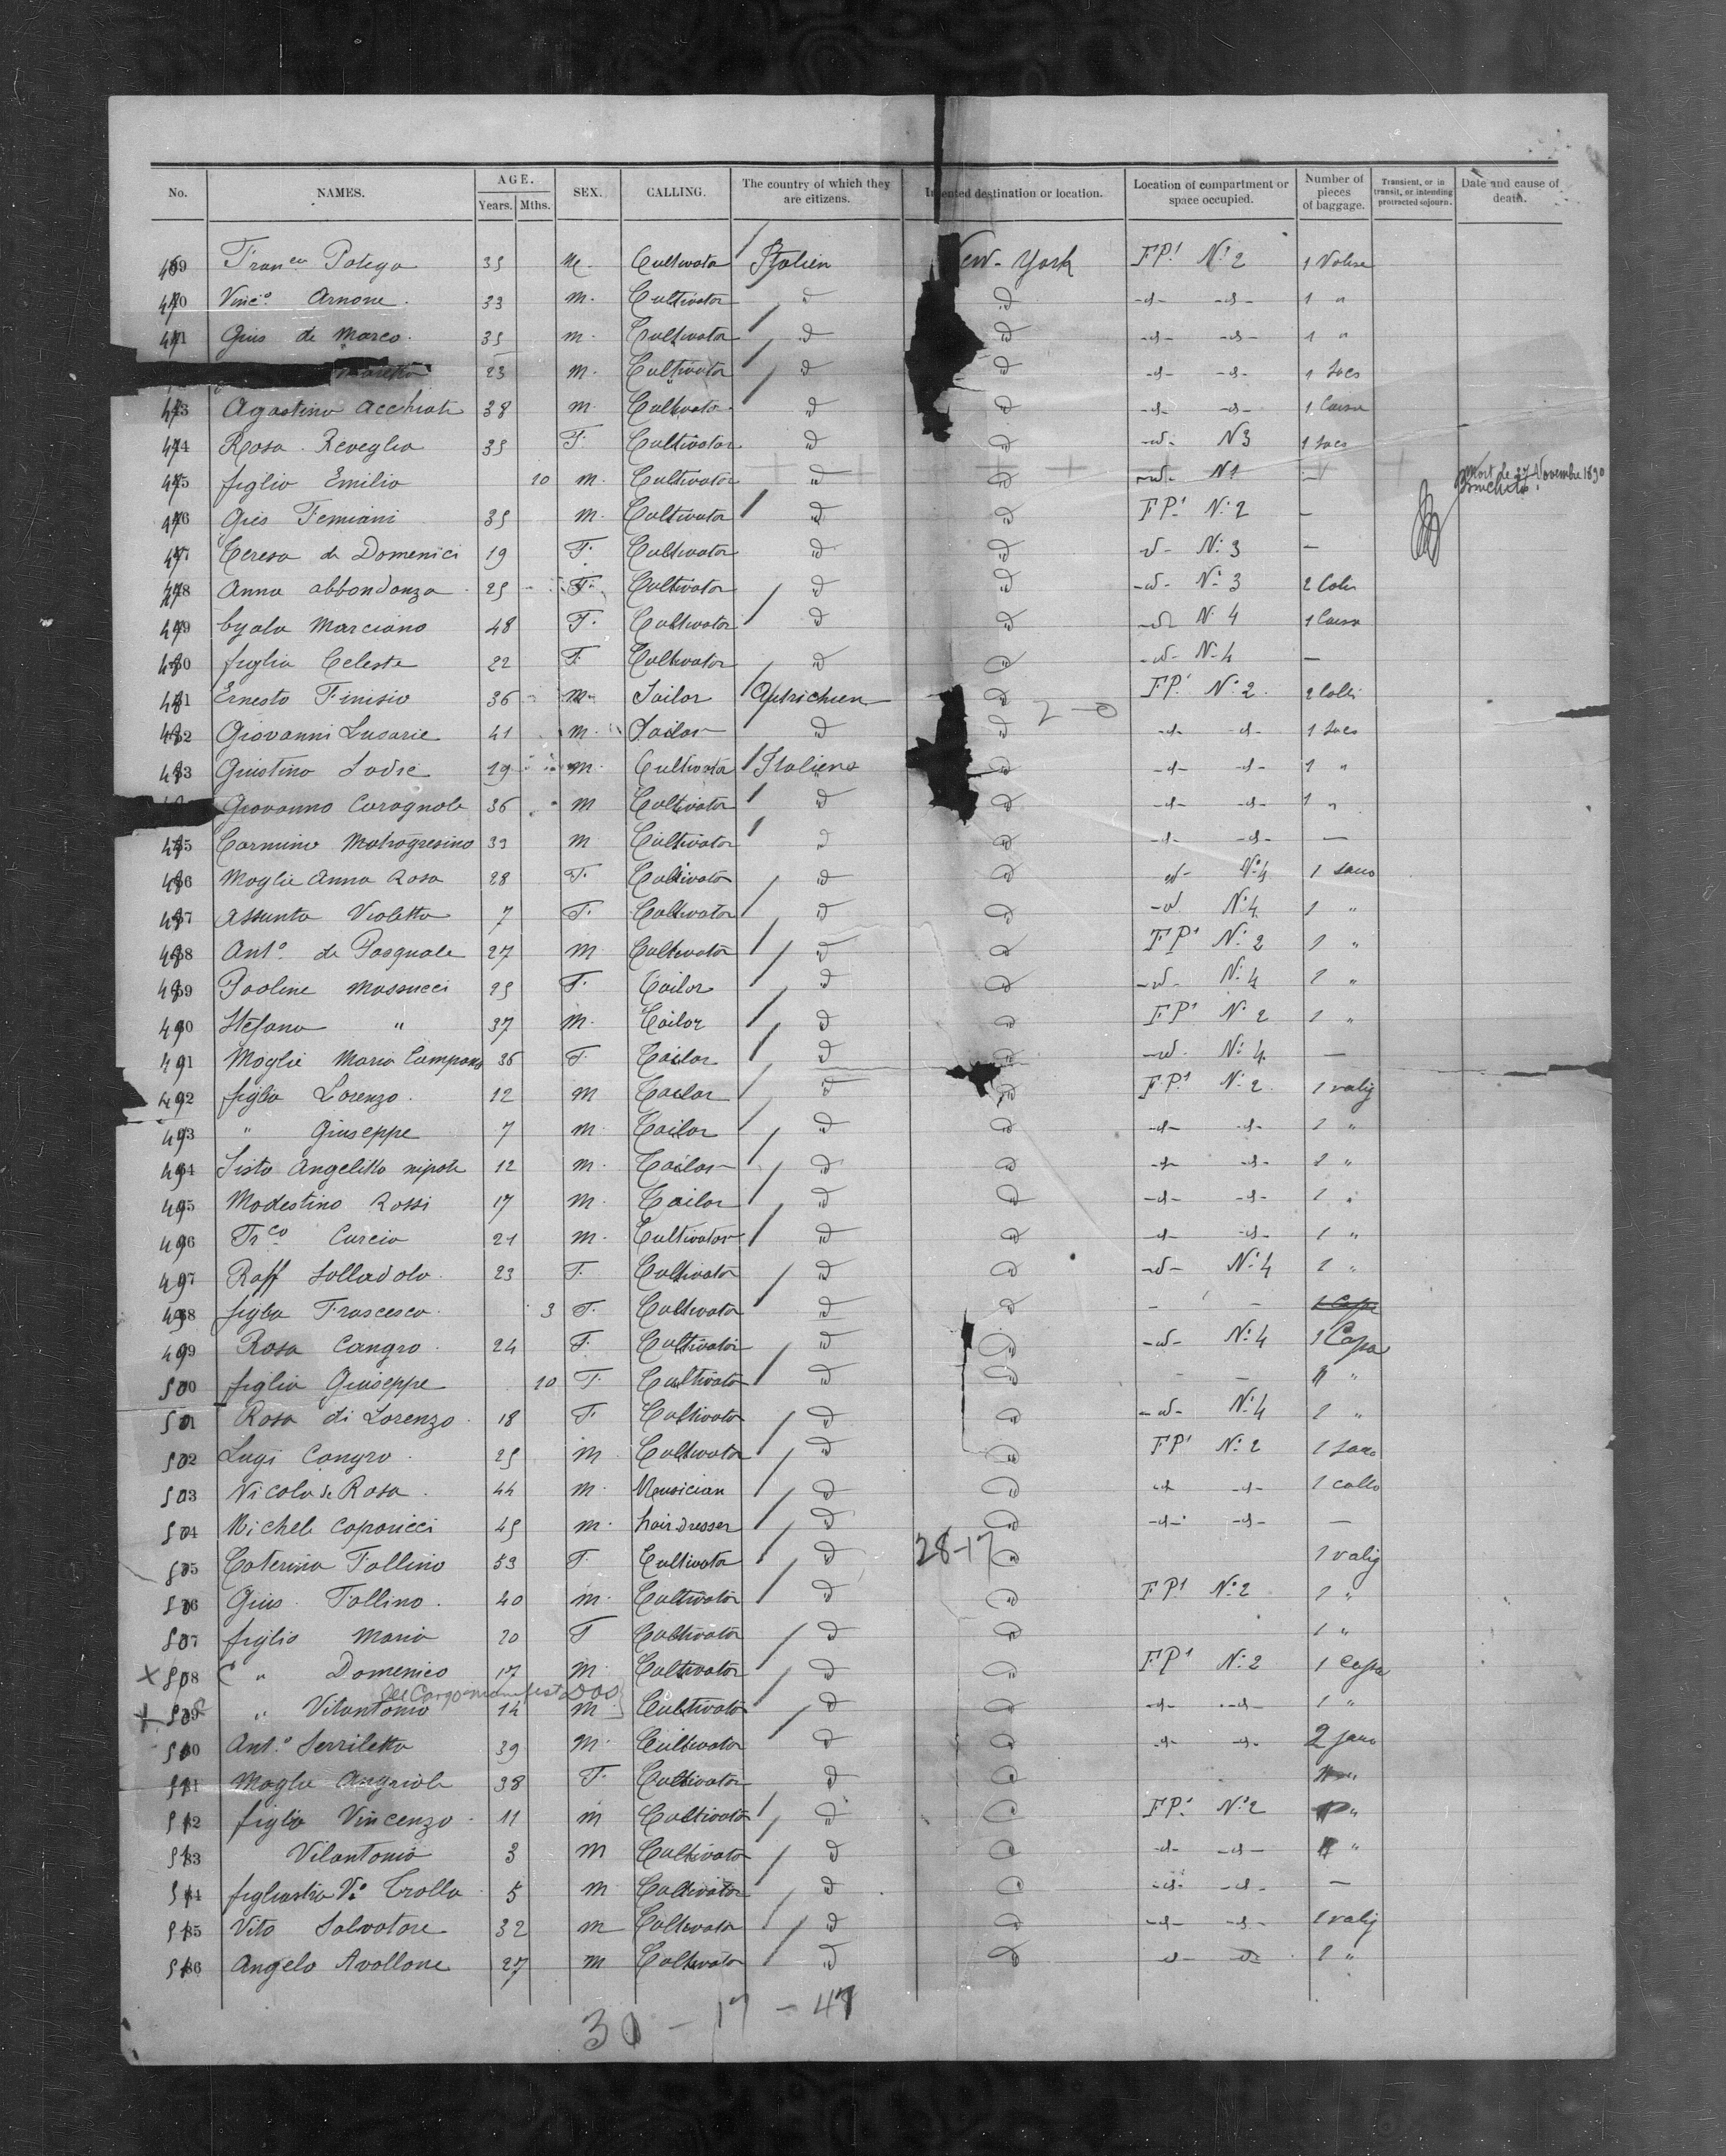 No. NAMES. AGE. Years. Mths. SEX. CALLING. The country of which they are citizens. Intented destination or location. Location of compartment or space occupied. Number of pieces of baggage. Transient, or in transit, or intending protracted sojourn. Date and cause of death.
469 Franca Potega 35 M. Cultivator Italien New-York FP! N:2 1 Valise
470 Vinc.o Arnone. 33 m. Cultivator id id -d- -d- 1 "
471 Gius de Marco. 35 m. Cultivator id id -d- -d- 1 "
23 m. Cultivator id id -d- -d- 1 Sacs
473 Agostino Acchiate 38 m. Cultivator id id -d- -d- 1 Caisse
474 Rosa Reveglia 35 F. Cultivator id id -d- N3 1 sacs
475 figlio Emilio 10 m. Cultivator id id -d- N1 — Mort le 27 Novembre 1890 Bronchite.
476 Gius Femiani 35 m. Cultivator id id FP! N:2 —
477 Teresa de Domenici 19 F. Cultivator id id -d- N:3 —
478 Anna abbondanza 25 F. Cultivator id id -d- N:3 2 Colis
479 Cyala Marciano 48 F. Cultivator id id -d- N 4 1 Caisse
480 figlia Celeste 22 F Cultivator id id -d- N-4 —
481 Ernesto Finisio 36 m. Tailor Autrichien id FP! N:2. 2 Colli
482 Giovanni Lusarie 41 m. Tailor id id -d- -d- 1 Sacs
483 Giustino Ladre 19 m. Cultivator Italiens id -d- -d- 1 "
Giovanno Caragnole 36 m Cultivator id id -d- -d- 1 "
485 Carmino Matrogresino 33 m Cultivator id id -d- -d- —
486 Moglie Anna Rosa 28 F. Cultivator id id -d- N:4 1 sacco
487 Assunta Violetta 7 F. Cultivator id id -d- N:4 1 "
488 Ant.o de Pasquale 27 m Cultivator id id FP! N:2 1 "
489 Paoline Massucci 25 F. Tailor id id -d- N:4 1 "
490 Stefano " 37 m. Tailor id id FP! N:2 1 "
491 Moglie Maria Campana 36 F. Tailor id id -d- N:4 —
492 figlio Lorenzo. 12 m Tailor id id FP! N:2 1 valig
493 " Giuseppe 7 m Tailor id id -d- -d- 1 "
494 Sisto Angelitto nipote 12 m. Tailor id id -d- -d- 1 "
495 Modestino Rossi 17 m. Tailor id id -d- -d- 1 "
496 Fr.co Curcio 21 m. Cultivator id id -d- -d- 1 "
497 Raff Solladolo 23 F. Cultivator id id -d- N:4 1 "
498 figlia Frascesca. 3 F. Cultivator id id - - 1 Capa
499 Rosa Cangro 24 F. Cultivator id id -d- N:4 1 Capa
500 figlia Giuseppe 10 F. Cultivator id id - - "
501 Rosa di Lorenzo 18 F. Cultivator id id -d- N:4 1 "
502 Luigi Cangro 25 m Cultivator id id FP! N:2 1 sacco
503 Nicola de Rosa 44 m. Musician id id -d- -d- 1 collo
504 Michele Caporicci 45 m. hairdresser id id -d- -d- —
505 Caterina Tollino 53 F. Cultivator id 28-17 id 1 valig
506 Gius. Tollino. 40 m. Cultivator id id FP! N:2 1 "
507 figlia Maria 20 F Cultivator id id 1 "
X 508 " Domenico 17 m. Cultivator id id FP! N:2 1 Capa
See Cargo manifest
X 509 " Vitantonio 14 m Cultivator id id -d- -d- 1 "
510 Ant.o Serriletta 39 m. Cultivator id id -d- -d- 2 sacco
511 Moglie Angriola 38 F. Cultivator id id "
512 figlio Vincenzo 11 m Cultivator id id FP! N:2 "
513 Vitantonio 3 m Cultivator id id -d- -d- "
514 figliastro V.o Trolla 5 m Cultivator id id -d- -d- —
515 Vito Salvatore 32 m Cultivator id id -d- -d- 1 valig
516 Angelo Avollone 27 m Cultivator id id -d- -d- 1 "
30 - 17 - 47